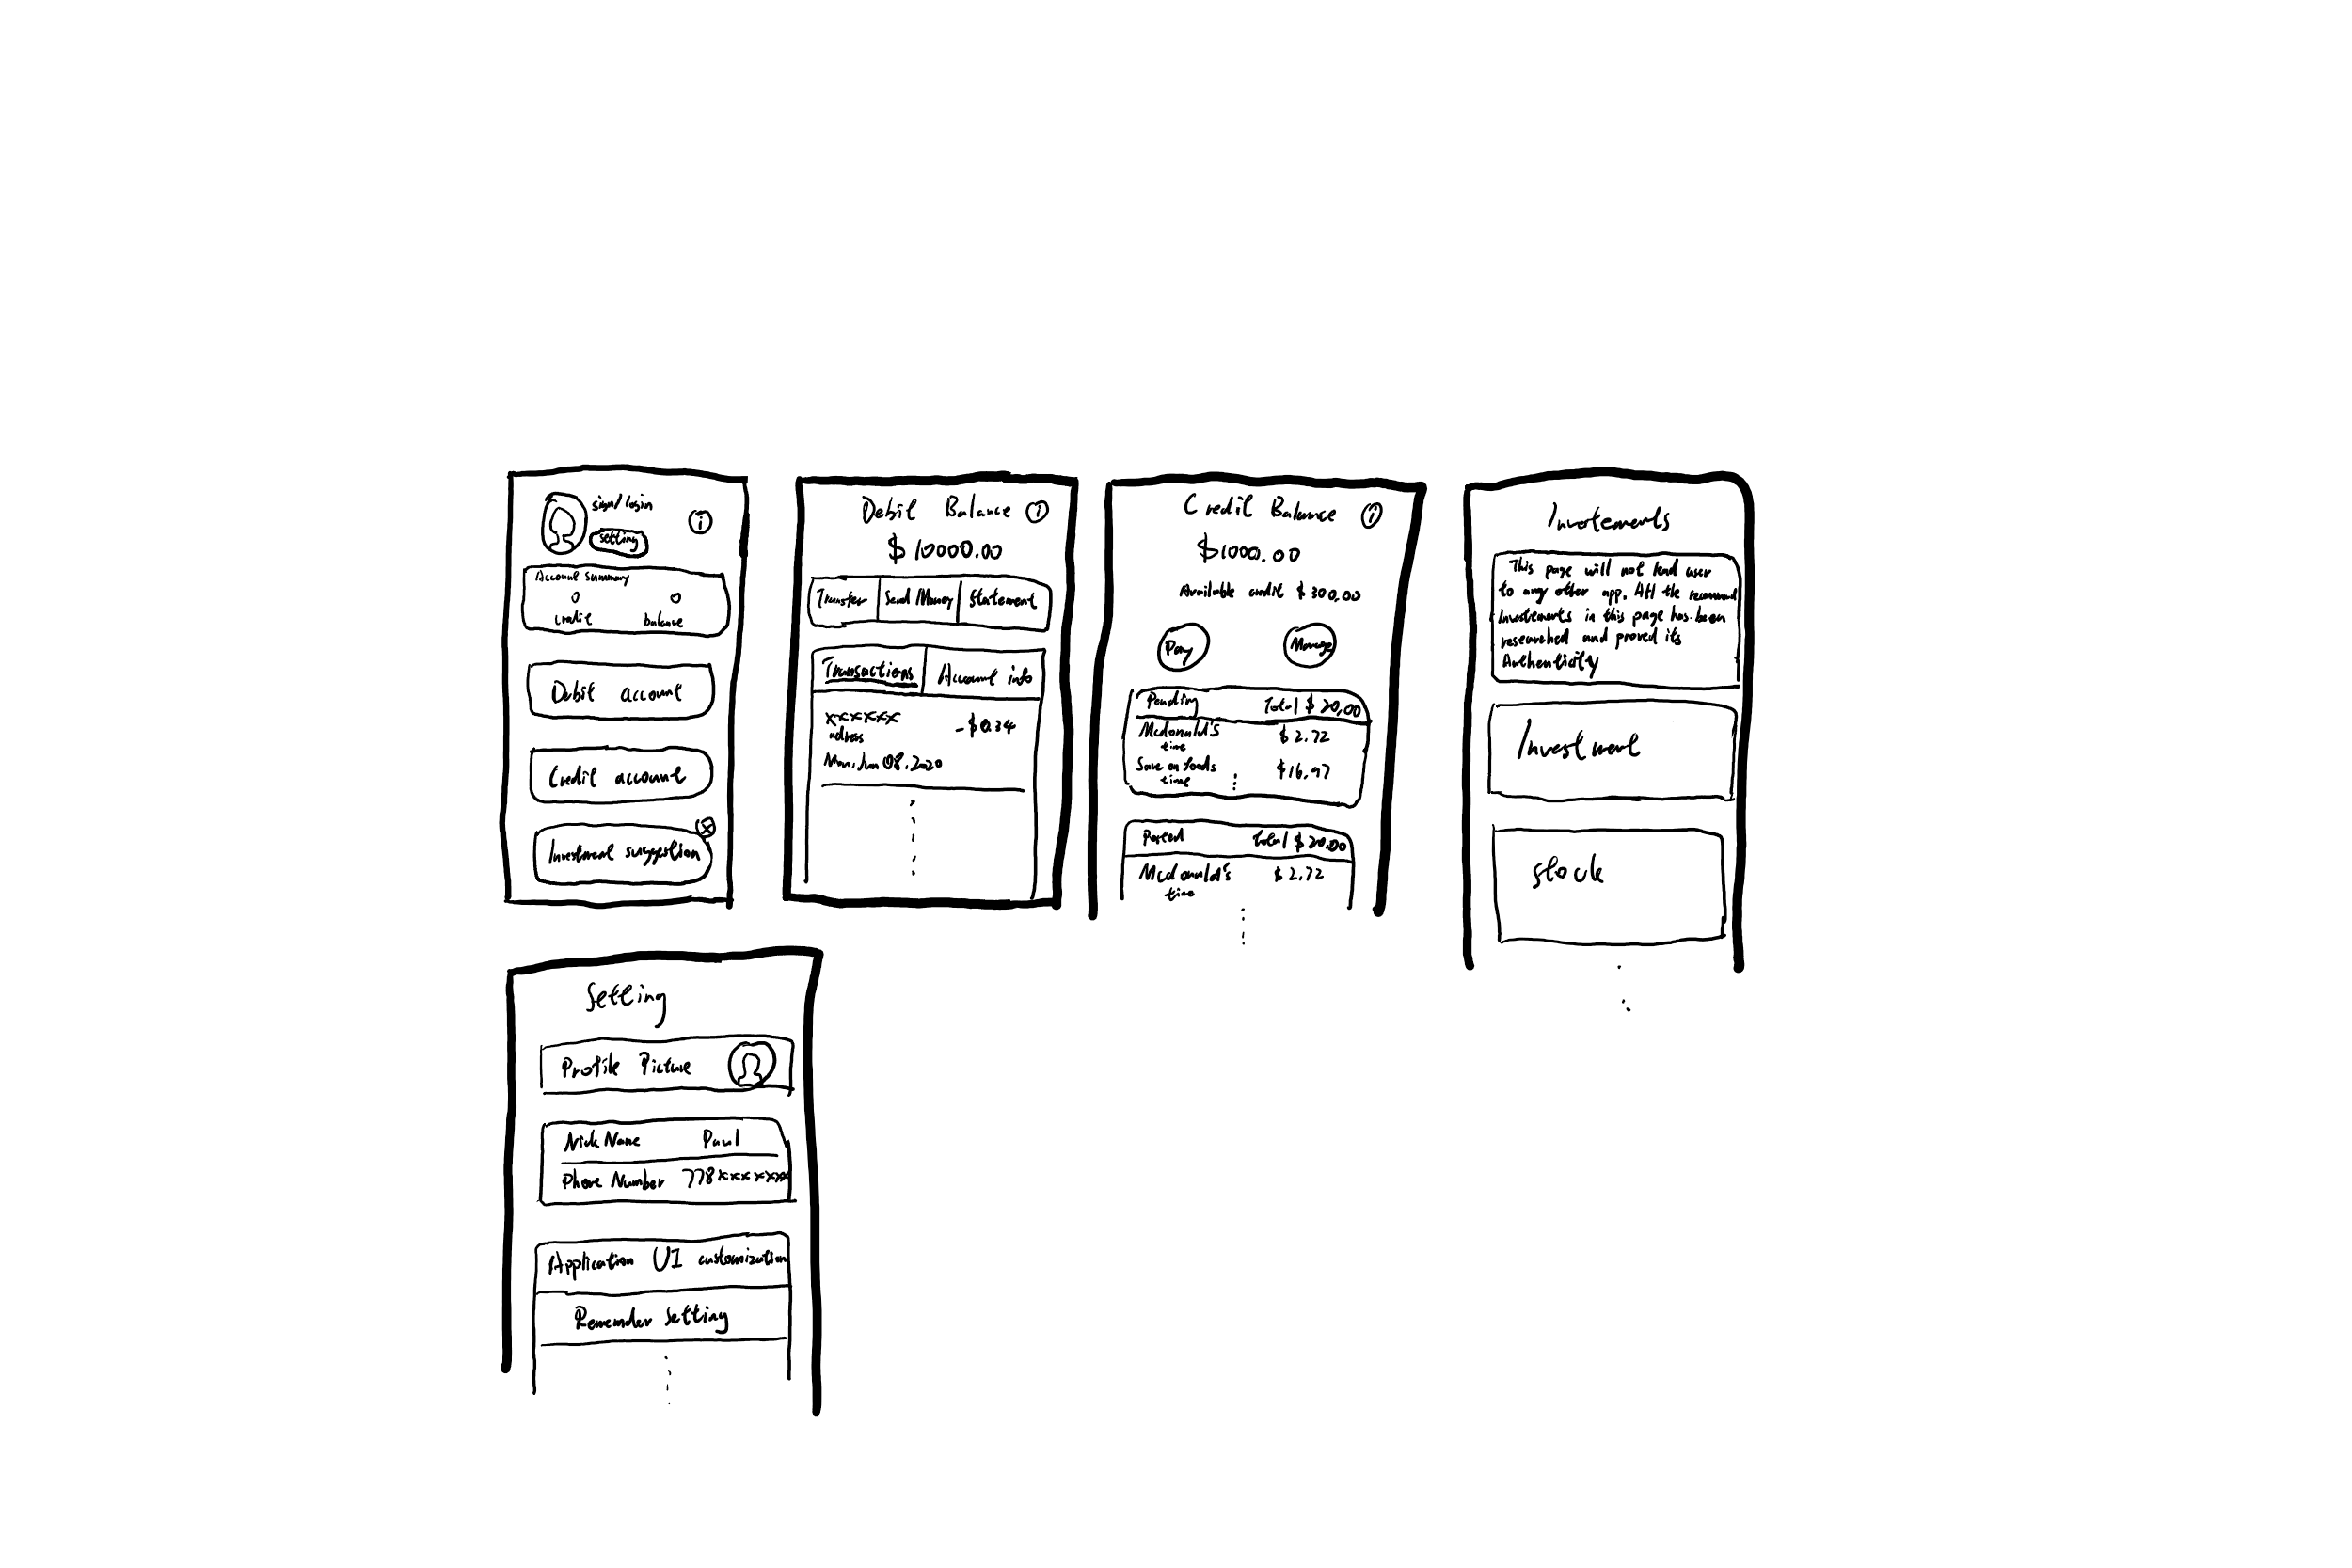 sign/login
setting
i
Account summary
credit balance
Debit account
Credit account
x
Investment suggestion
Debit Balance i
$10000.00
Transfer Send Money Statement
Transactions Account info
xxxxxx -$0.34
address
Mon, Jun 08, 2020
Credit Balance i
$1000.00
Available credit $300.00
Pay Manage
Pending Total $20.00
Mcdonald's $2.72
time
Save on foods $16.97
time
Posted total $20.00
Mcdonald's $2.72
time
Investements
This page will not lead user
to any other app. All the recommend
Investements in this page has been
researched and proved its
Authenticity
Investment
stock
Setting
Profile Picture
Nick Name Paul
Phone Number 778xxxxxxx
Application UI customization
Remember setting